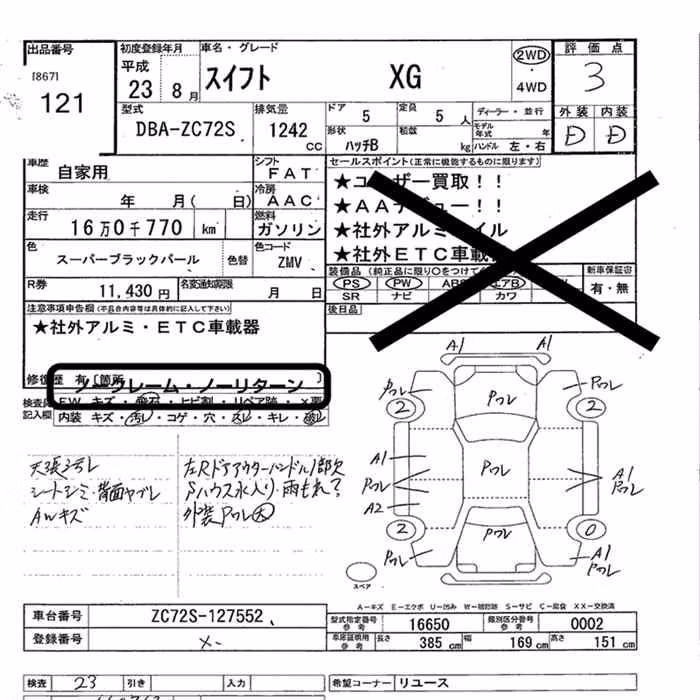 出品番号
[867]
121
初度登録年月
平成
23 8月
車名・グレード
スイフト XG
2WD
4WD
評価点
3
外装 内装
D D
型式
DBA-ZC72S
排気量
1242
CC
ドア
5
定員
5 人
形状
ハッチB
積載
kg
ディーラー・並行
モデル年式 年
ハンドル 左・右
車歴
自家用
シフト
FAT
車検
年 月( 日)
冷房
AAC
走行
16万0千770 km
燃料
ガソリン
色
スーパーブラックパール
色替
色コード
ZMV
R券
11,430円
名変通知期限
月 日
セールスポイント(正常に機能するものに限ります)
★ユーザー買取!!
★AAデビュー!!
★社外アルミホイル
★社外ETC車載
装備品
PS PW AB エアB
SR ナビ カワ
新車保証書
有・無
後日品
注意事項申告欄(不具合内容等は具体的に記入して下さい)
★社外アルミ・ETC車載器
修復歴 有 [箇所 ]
ノークレーム・ノーリターン
検査員記入欄
FW キズ・飛石・ヒビ割・リペア跡・X要
内装 キズ・汚レ・コゲ・穴・スレ・キレ・破レ
天張汚レ
シートシミ・背面ヤブレ
AWキズ
左RドアアウターハンドルI部欠
Sハウス水入り・雨もれ?
外装Pワレ大
A1 A1
Pワレ Pワレ Pワレ
2 2
A1 Pワレ A1
Pワレ Pワレ
A2
2 0
Pワレ Pワレ A1
Pワレ
スペア
A-キズ E-エクボ U-凹み W-補修跡 S-サビ C-腐食 XX-交換済
車台番号
ZC72S-127552
登録番号
×-
型式指定番号
参考
16650
類別区分番号
参考
0002
車庫証明用
参考
長さ 385 cm 幅 169 cm 高さ 151 cm
検査 23 引き 入力
希望コーナー リユース